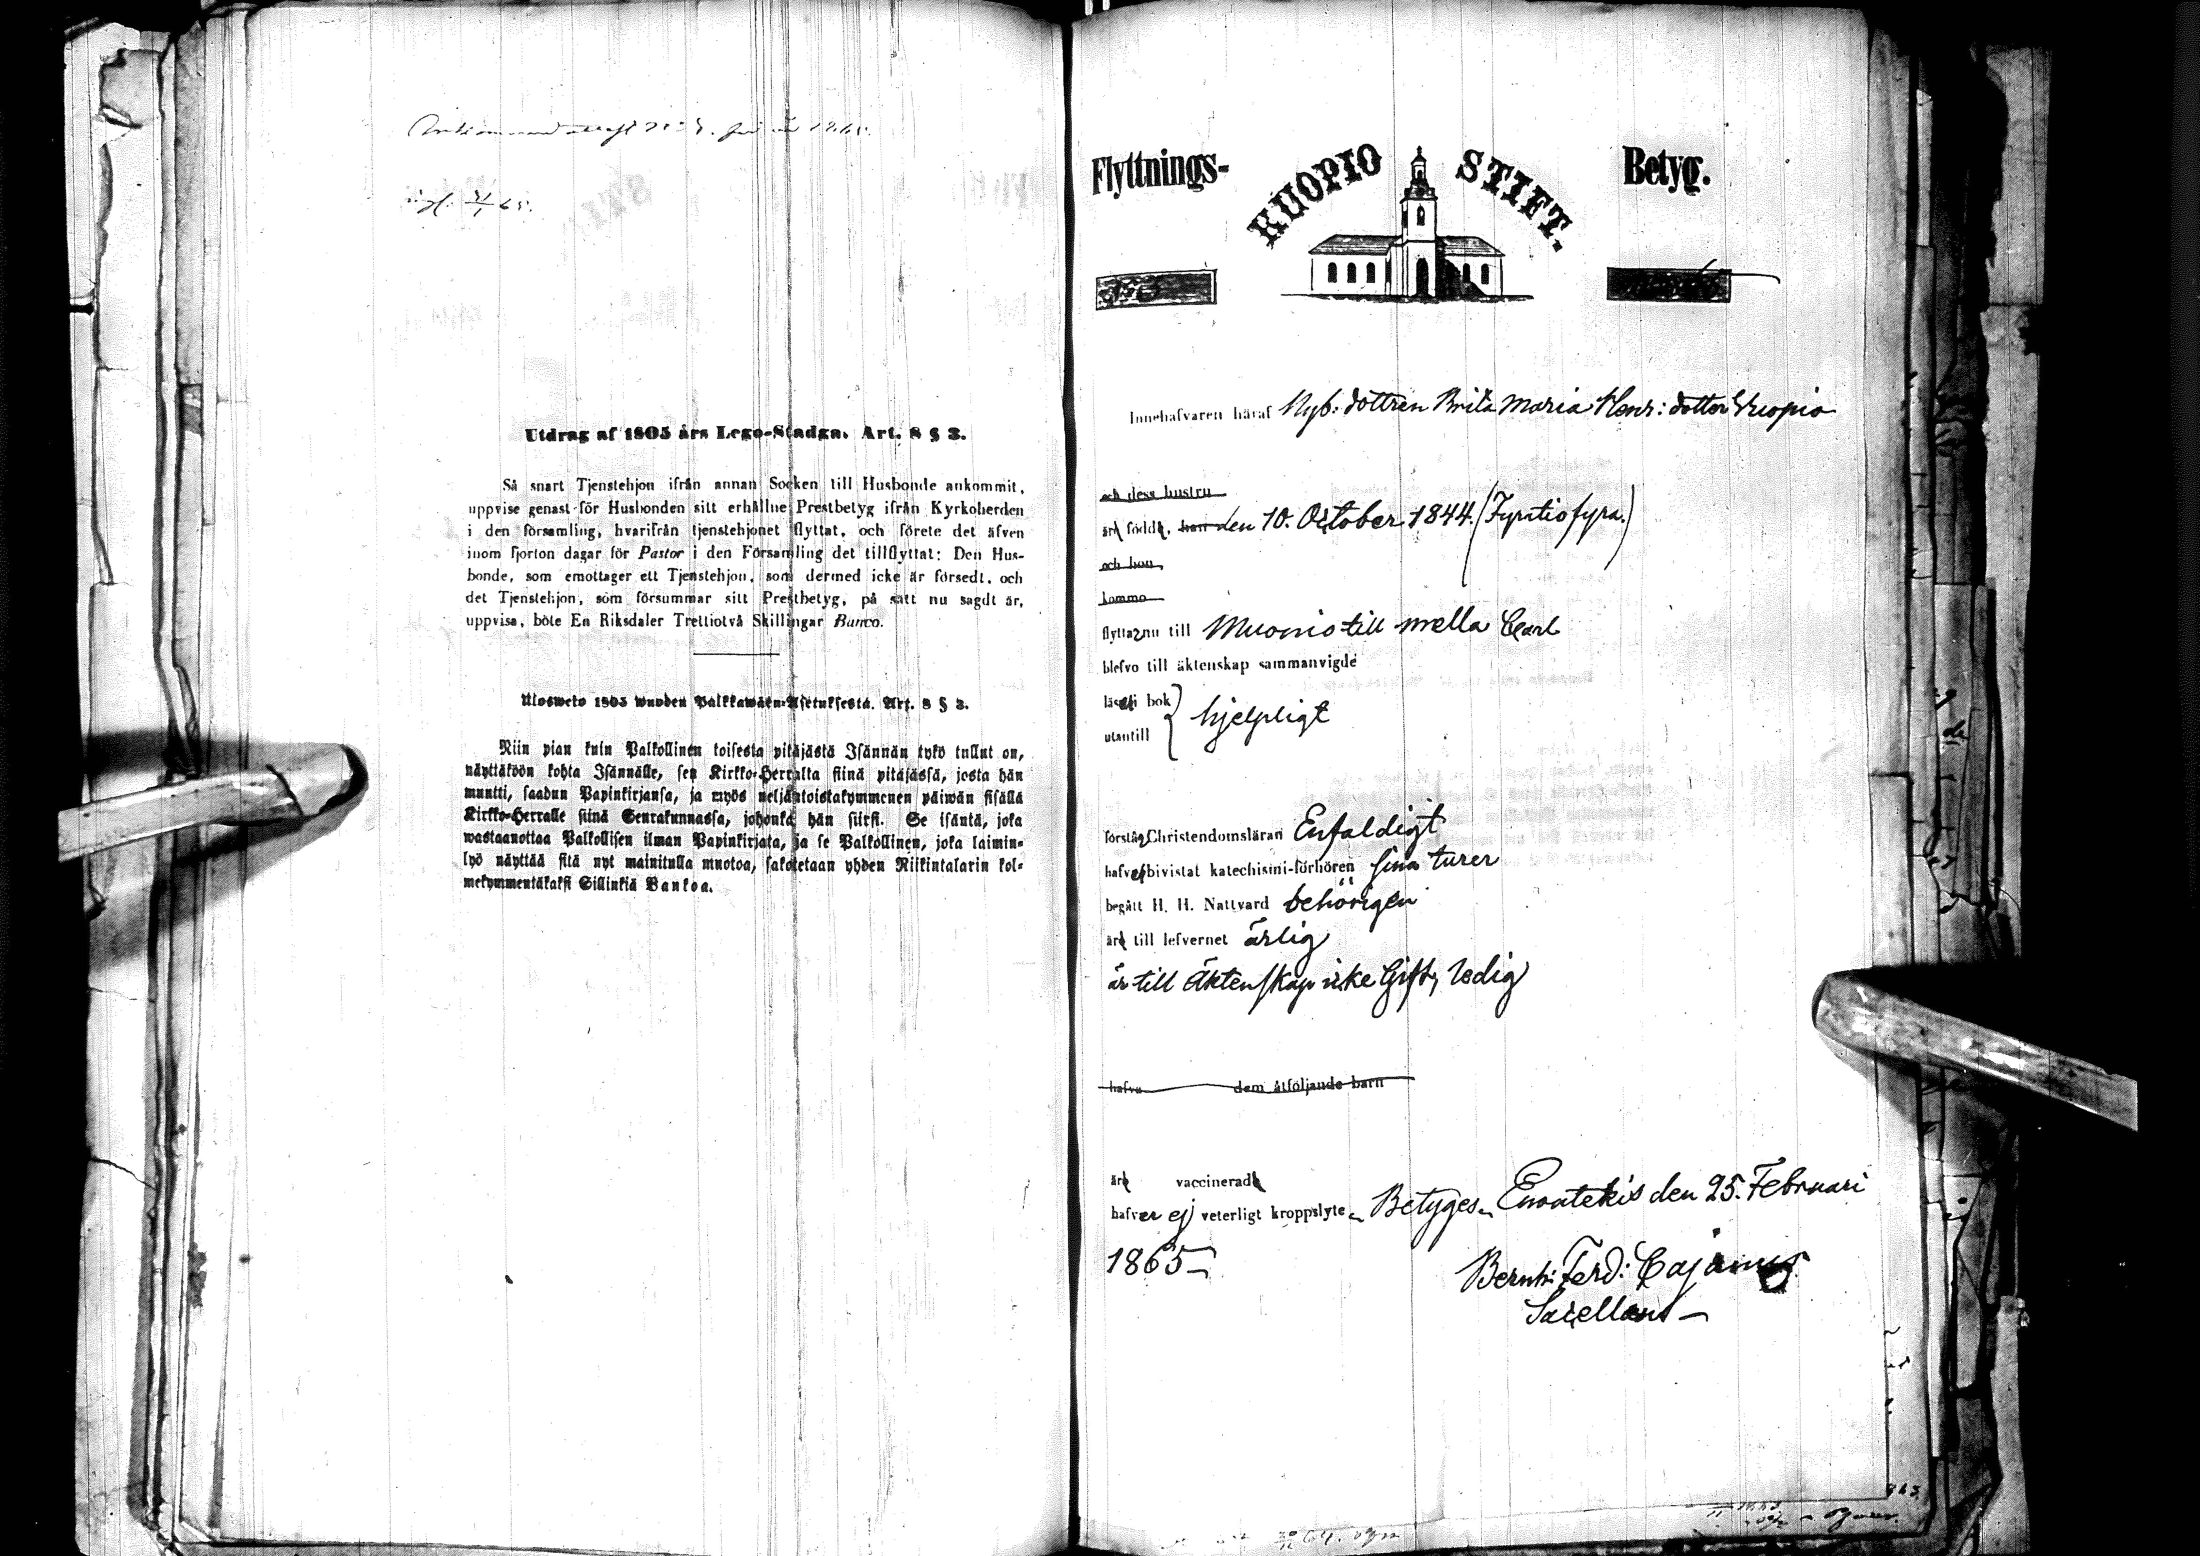 Utdrag af 1805 års Lego-Stadga. Art. 8 § 3.
Så snart Tjenstehjon ifrån annan Socken till Husbonde ankommit,
uppvise genast för Husbonden sitt erhållne Prestbetyg ifrån Kyrkoherden
i den församling, hvarifrån tjenstehjonet flyttat, och förete det äfven
inom fjorton dagar för Pastor i den Församling det tillflyttat: Den Hus-
bonde, som emottager ett Tjenstehjon, som dermed icke är försedt, och
det Tjenstehjon, som försummar sitt Prestbetyg, på sätt nu sagdt är,
uppvisa, böte En Riksdaler Trettiotvå Skillingar Banco.
Ulosweto 1805 wuoden Palkkawäen-Asetuksesta. Art. 8 § 3.
Niin pian kuin Palkollinen toisesta pitäjästä Isännän tykö tullut on,
näyttäköön kohta Isännälle, sen Kirkko-Herralta siinä pitäjässä, josta hän
muutti, saadun Papinkirjansa, ja myös neljäntoistakymmenen päiwän sisällä
Kirkko-Herralle siinä Seurakunnassa, johonka hän siirsi. Se isäntä, joka
wastaanottaa Palkollisen ilman Papinkirjata, ja se Palkollinen, joka laimin-
lyö näyttää sitä nyt mainitulla muotoa, sakotetaan yhden Riikintalarin kol-
mekymmentäkaksi Sillinkiä Bankoa.
Flyttnings- KUOPIO STIFT. Betyg.
Innehafvaren häraf Nyb: dottren Brita Maria Henr: dotter Kuopio
och dess hustru
äro födde, han den 10. October 1844. (Fyratiofyra.)
och hon,
komme
flytta nu till Muonio till mella Carl
blefvo till äktenskap sammanvigde
läse i bok
utantill } hjelpligt
förstå Christendomsläran Enfaldigt
hafver bivistat katechismi-förhören sina turer
begått H. H. Nattvard behörigen
äro till lefvernet ärlig
är till Äktenskap icke Gift, ledig
hafva dem åtföljande barn
äro vaccinerade
hafver ej veterligt kroppslyte. Betyges. Enontekis den 25. Februari
1865
Bernh: Ferd: Cajanus
Sacellan